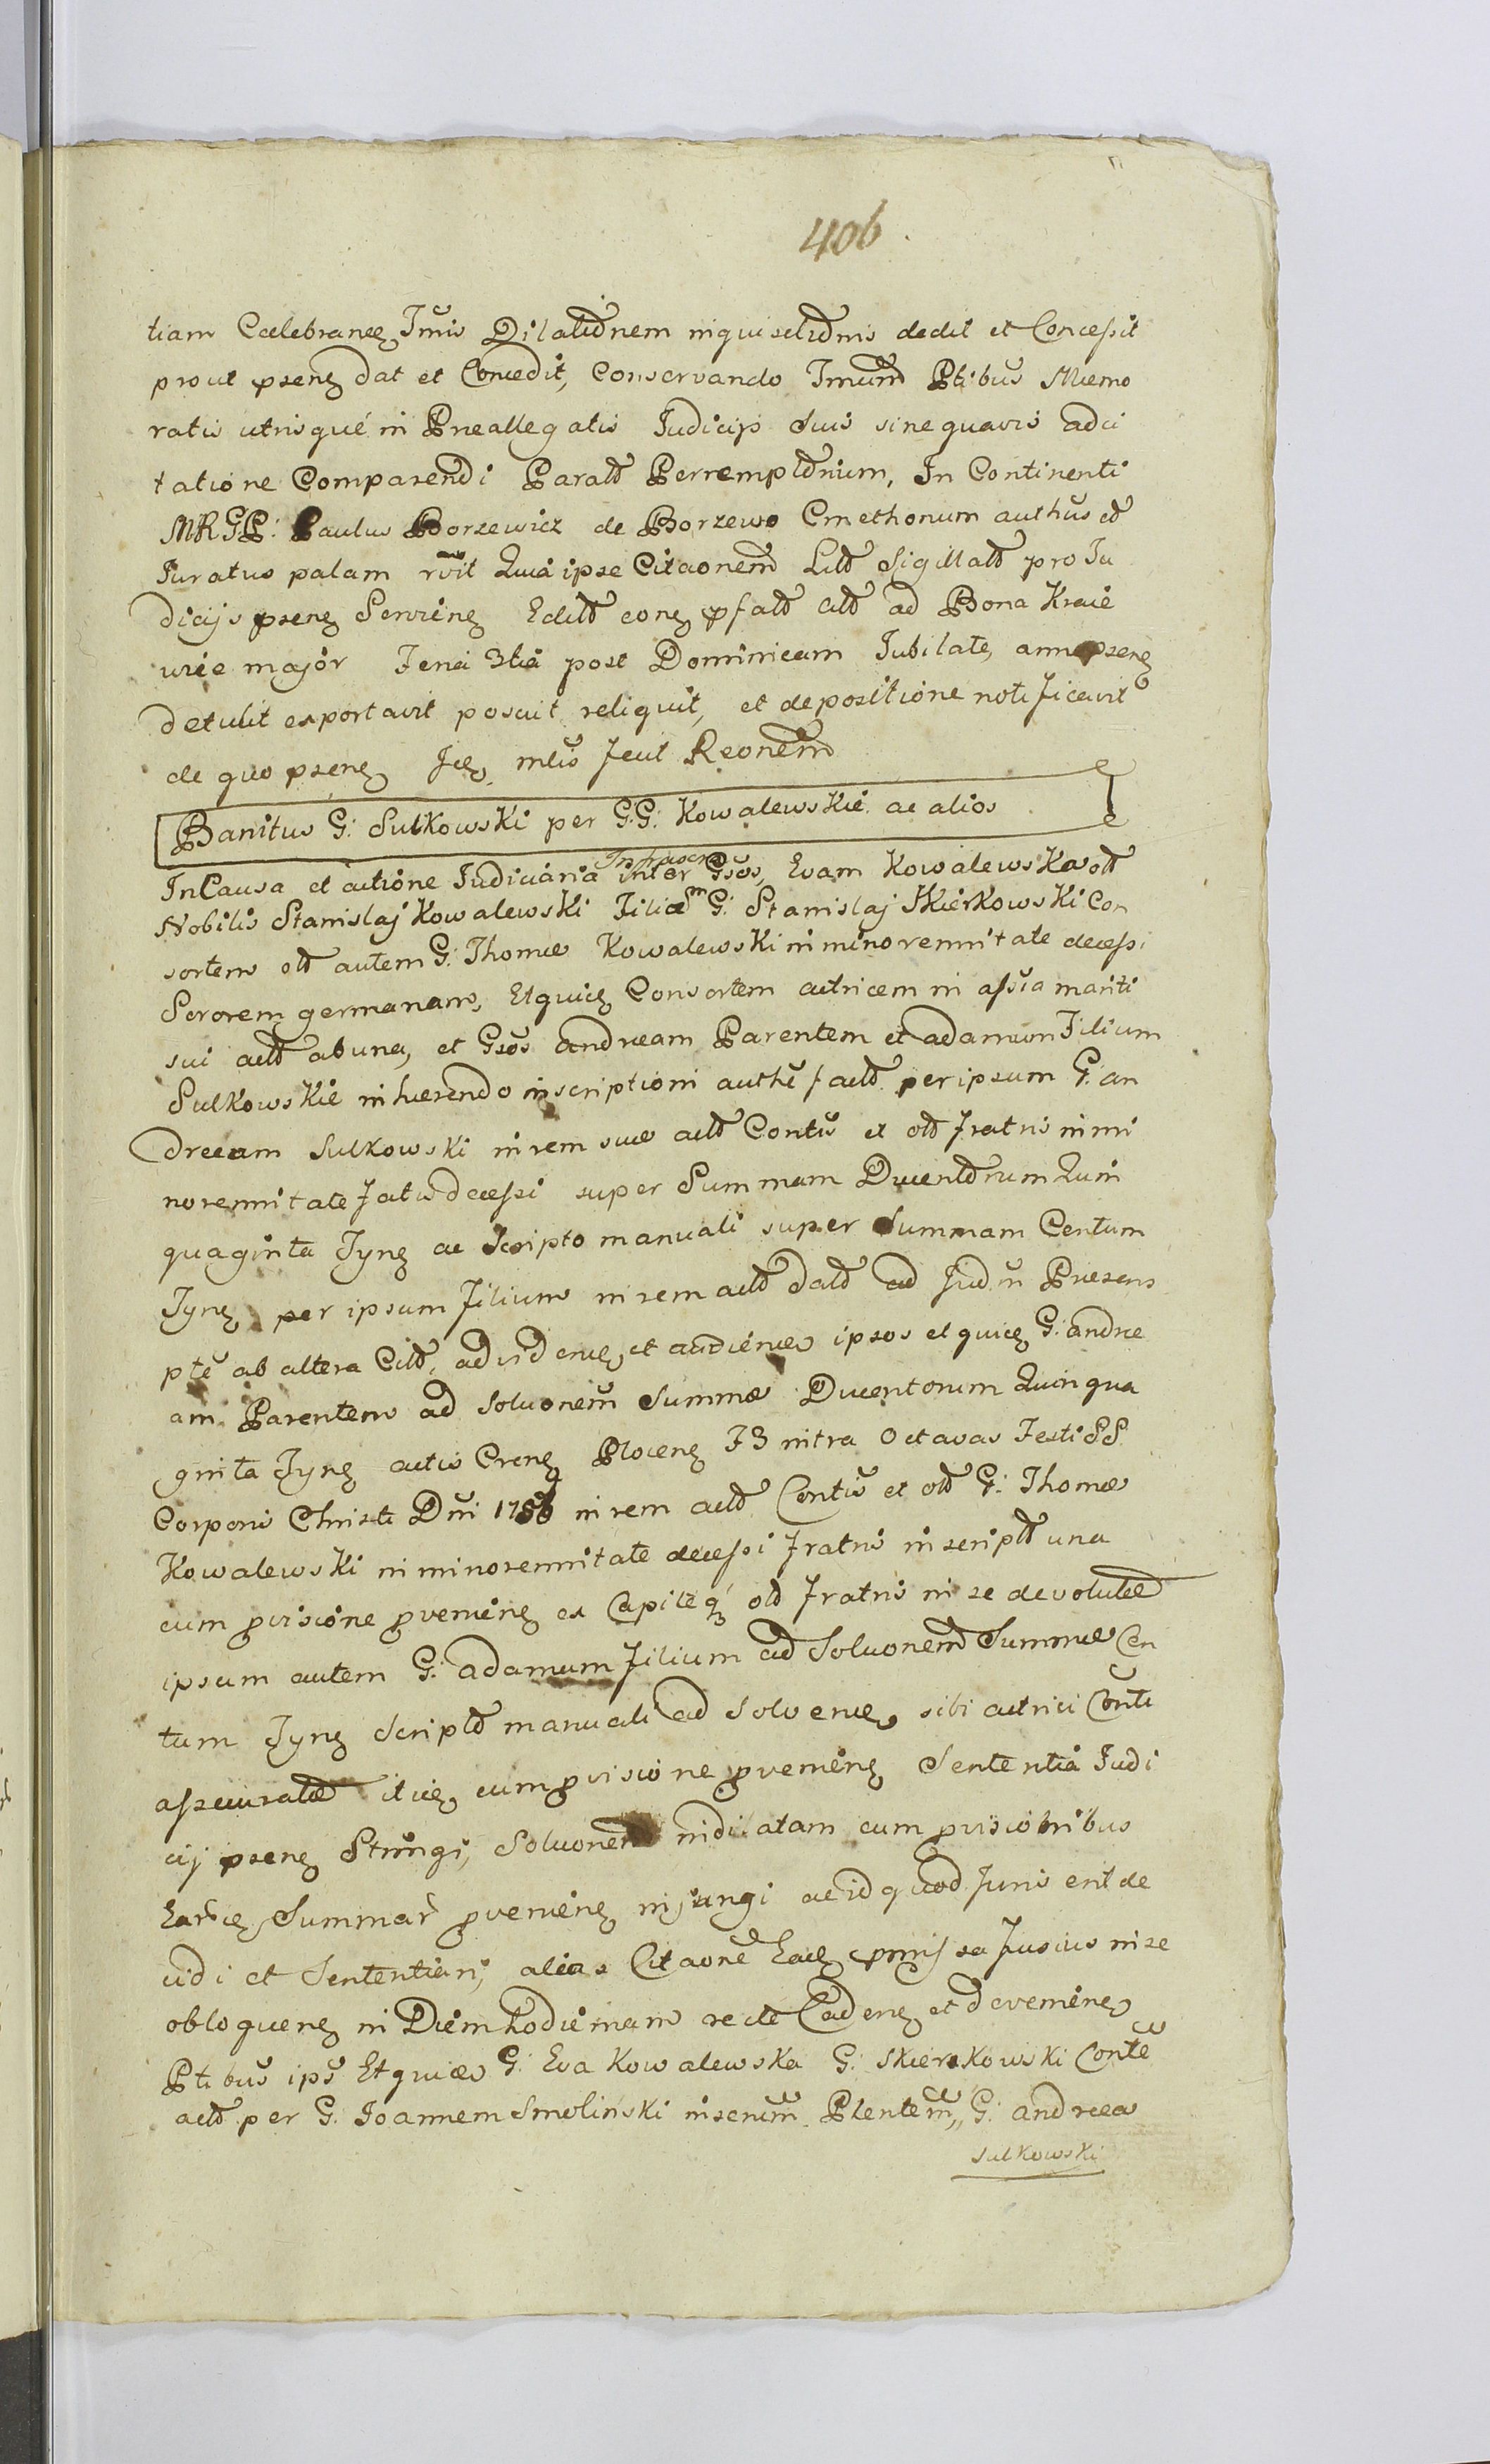 406
tiam Caelebranꝫ Tmis Dilatiõnem inquisitiõnis dedit et Concessit
prout psenꝫ dat et Concedit, Conservando Tmum Ptibus Memo
ratis utrisque in Preallegatis Judicijs suis sine quavis adci
tatione Comparendi Parato Perremptorium, In Continenti
MRGP: Paulus Borzewicz de Borzewo Cmethonum authus et
Juratus palam rvit Quia ipse Citaonem Litt Sigillatt pro Ju
dicijs psenꝫ Servienꝫ Editt eonꝫ pfatt Att ad Bona Kraie
wie major Feria 3tia post Dominicam Jubilate, anni psenꝫ
detulit exportavit posuit reliquit, et depositione notificavit
de quo psenꝫ Jcꝫ mlis fecit Reonem
Banitus G: Sulkowski per G.G: Kowalewskie ac alios
In Causa et actione Judiciaria inter Infrascr Gsos, Evam Kowalewska ott
Nobilis Stanislaj Kowalewski Filiam G: Stanislaj Skierkowski Con
sortem ott autem G: Thomae Kowalewski in minorennitate decessi
Sororem germanam, Etquicꝫ Consortem actricem in assia mariti
sui actt ab una, et Gsos Andream Parentem et Adamum Filium
Sulkowskie inhaerendo inscriptioni authe factt per ipsum G: An
dream Sulkowski in rem suae actt Contis et ott fratris in mi
norennitate fatis decessi super Summam Ducentorum Quin
quaginta Tynꝫ ac Scripto manuali super Summam Centum
Tynꝫ per ipsum Filium in rem actt datt ad Judm Praesens
pte ab altera Citt, ad videnꝫ et audienꝫ ipsos etquicꝫ G: Andre
am Parentem ad Soluonem Summae Ducentorum Quinqua
ginta Tynꝫ actis Crenꝫ Plocenꝫ F3 intra Octavas Festi SS
Corporis Christi Dni 1756 in rem actt Contis et ott G: Thomae
Kowalewski in minorennitate decessi fratris inscriptt una
cum pvisione pvenienꝫ ex Capiteq ott fratris in se devolutae
ipsum autem G: Adamum Filium ad Soluonem Summae Cen
tum Tynꝫ Scripto manuali ad Solvenꝫ sibi actrici Conti
assecuratae itiꝫ cum pvisione pvenienꝫ Sententia Judi
cij psenꝫ Stringi, Soluonem indilatam cum pvisionibus
Earꝫ Summar pvenienꝫ injungi ac id quod Juris erit de
cidi et Sententiari, alias Citaone Eadꝫ pmissa fusius in se
obloquenꝫ in Diem hodiernam recte Cadenꝫ et devenienꝫ
Ptibus ips Etquicꝫ G: Eva Kowalewska G: Skierkowski Conte
actt per G. Joannem Smoliński inserum Plentem, G: Andreas
Sulkowski